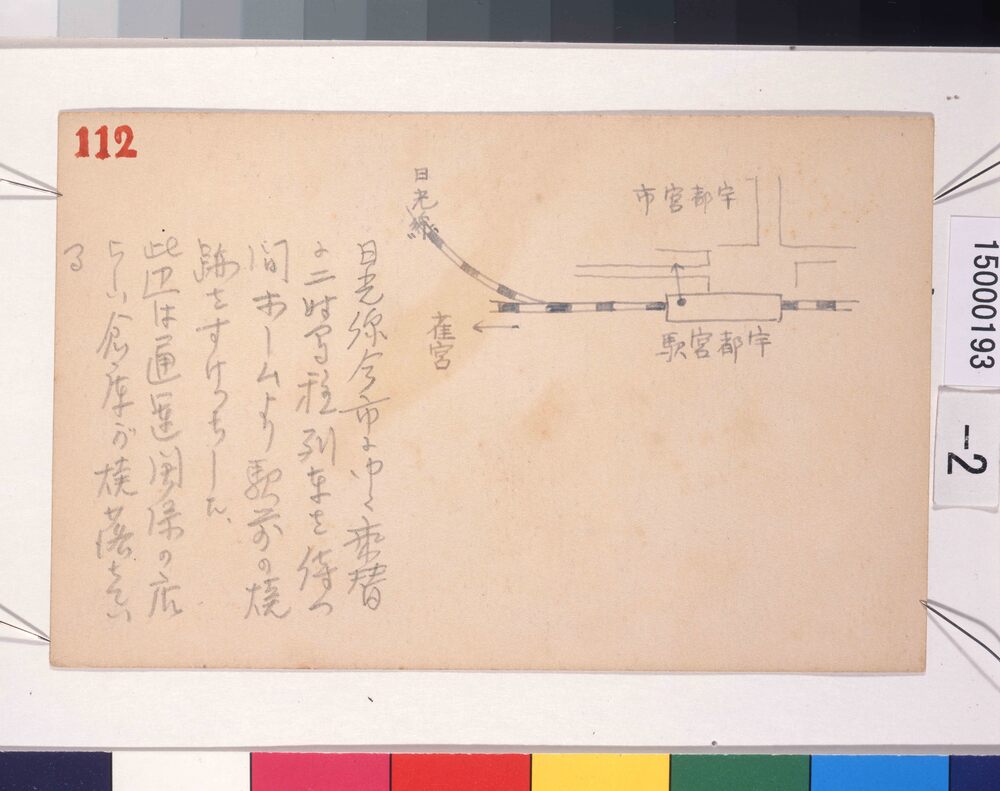 112
日光線
宇都宮市
宇都宮駅
雀宮
日光線今市にゆく乗替
に二時間程列車を待つ
間ホームより駅前の焼
跡をすけっちした、
此辺は通運関係の店
らしい倉庫が焼落
る
15000193
-2